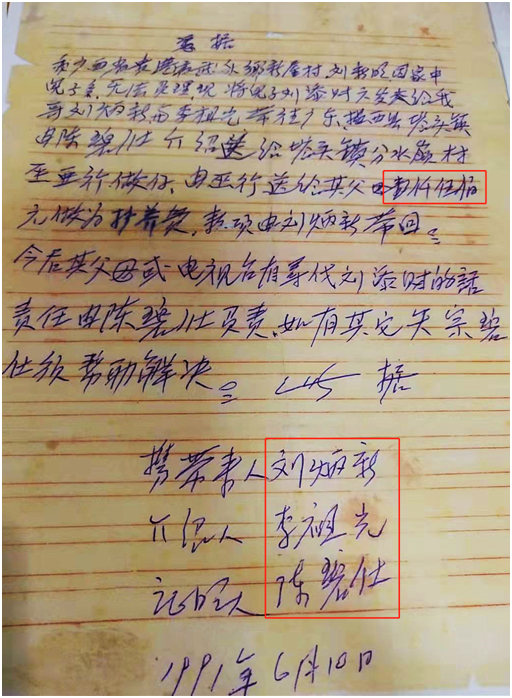 意据
和广西
县
乡新屋村,刘
因家中
儿子多,无法
将儿子刘添财六岁
给我
哥刘炳新与李祖光带往广东,揭西县塔头镇
由陈碧仕介绍送给塔头镇分水
村
至亚行做仔,由亚行送给其父母壹仟伍佰
元做为抚养费,款项由刘炳新带回。
今后其父母或电视台有寻代刘添财的話
责任由陈碧仕负责,如有其它失宗碧
仕须帮助解决。此据
携带来人刘炳新
介绍人 李祖光
证明人 陈碧仕
1991年6月10日